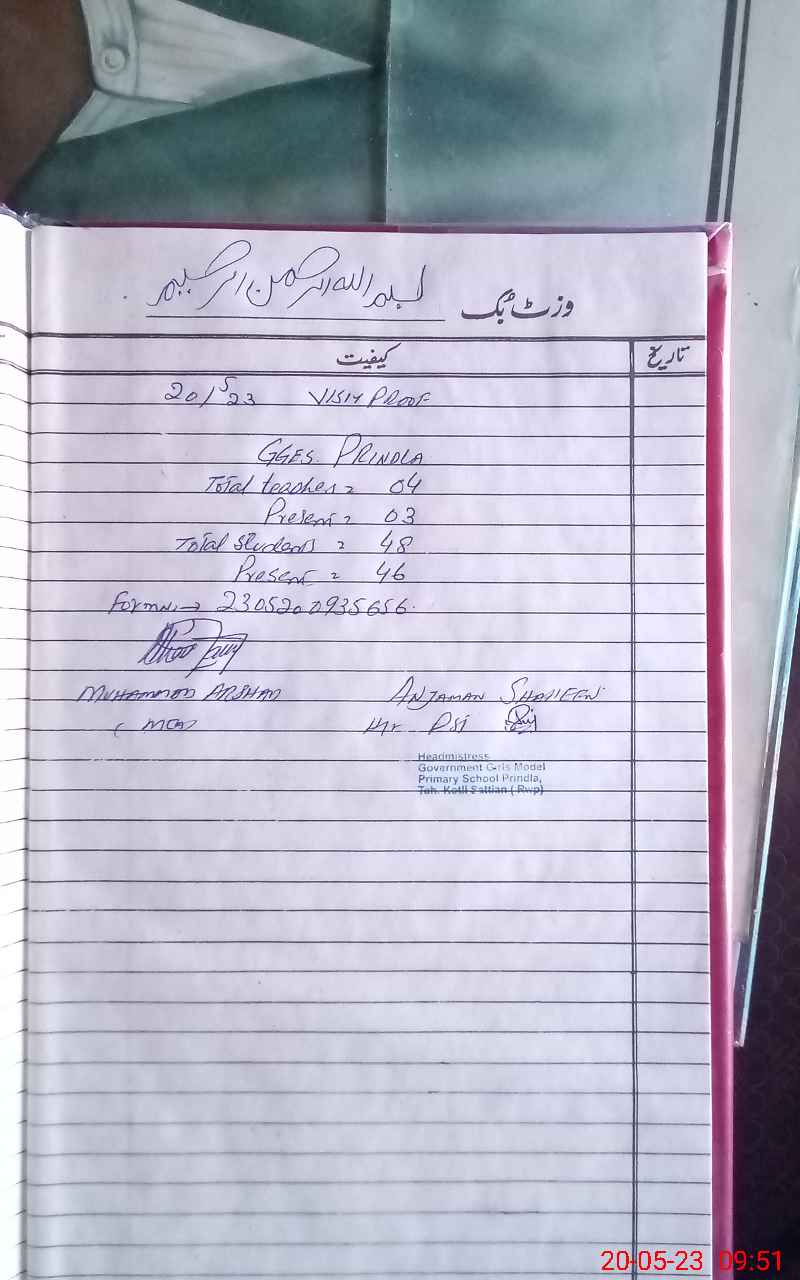 بسم اللہ الرحمن الرحیم
وزٹ بک
کیفیت تاریخ
20/5/23 VISIT PROOF
GGES. PRINDLA
Total teacher = 04
Present = 03
Total students = 48
Present = 46
Form No → 2305200935656.
MUHAMMAD ARSHAD ANJAMAN SHAHEEN
(MEA)
Headmistress
Government Girls Model
Primary School Prindla,
Teh. Kotli Sattian (Rwp)
20-05-23 09:51